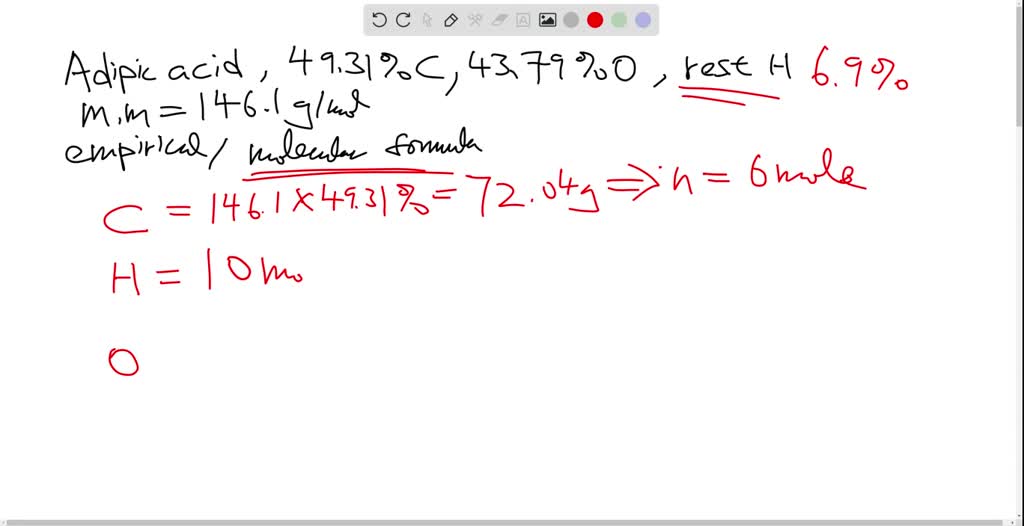 Adipic acid, 49.31%C, 43.79%O, rest H 6.9%
m.m = 146.1 g/mol
empirical/ molecular formula
C = 146.1 × 49.31% = 72.04g ⇒ n = 6 mole
H = 10 mo
O